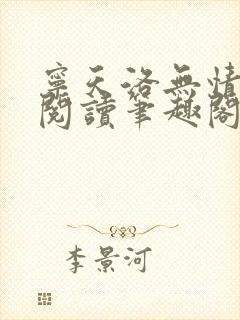 寧天洛無情
閱讀筆趣閣
李景河